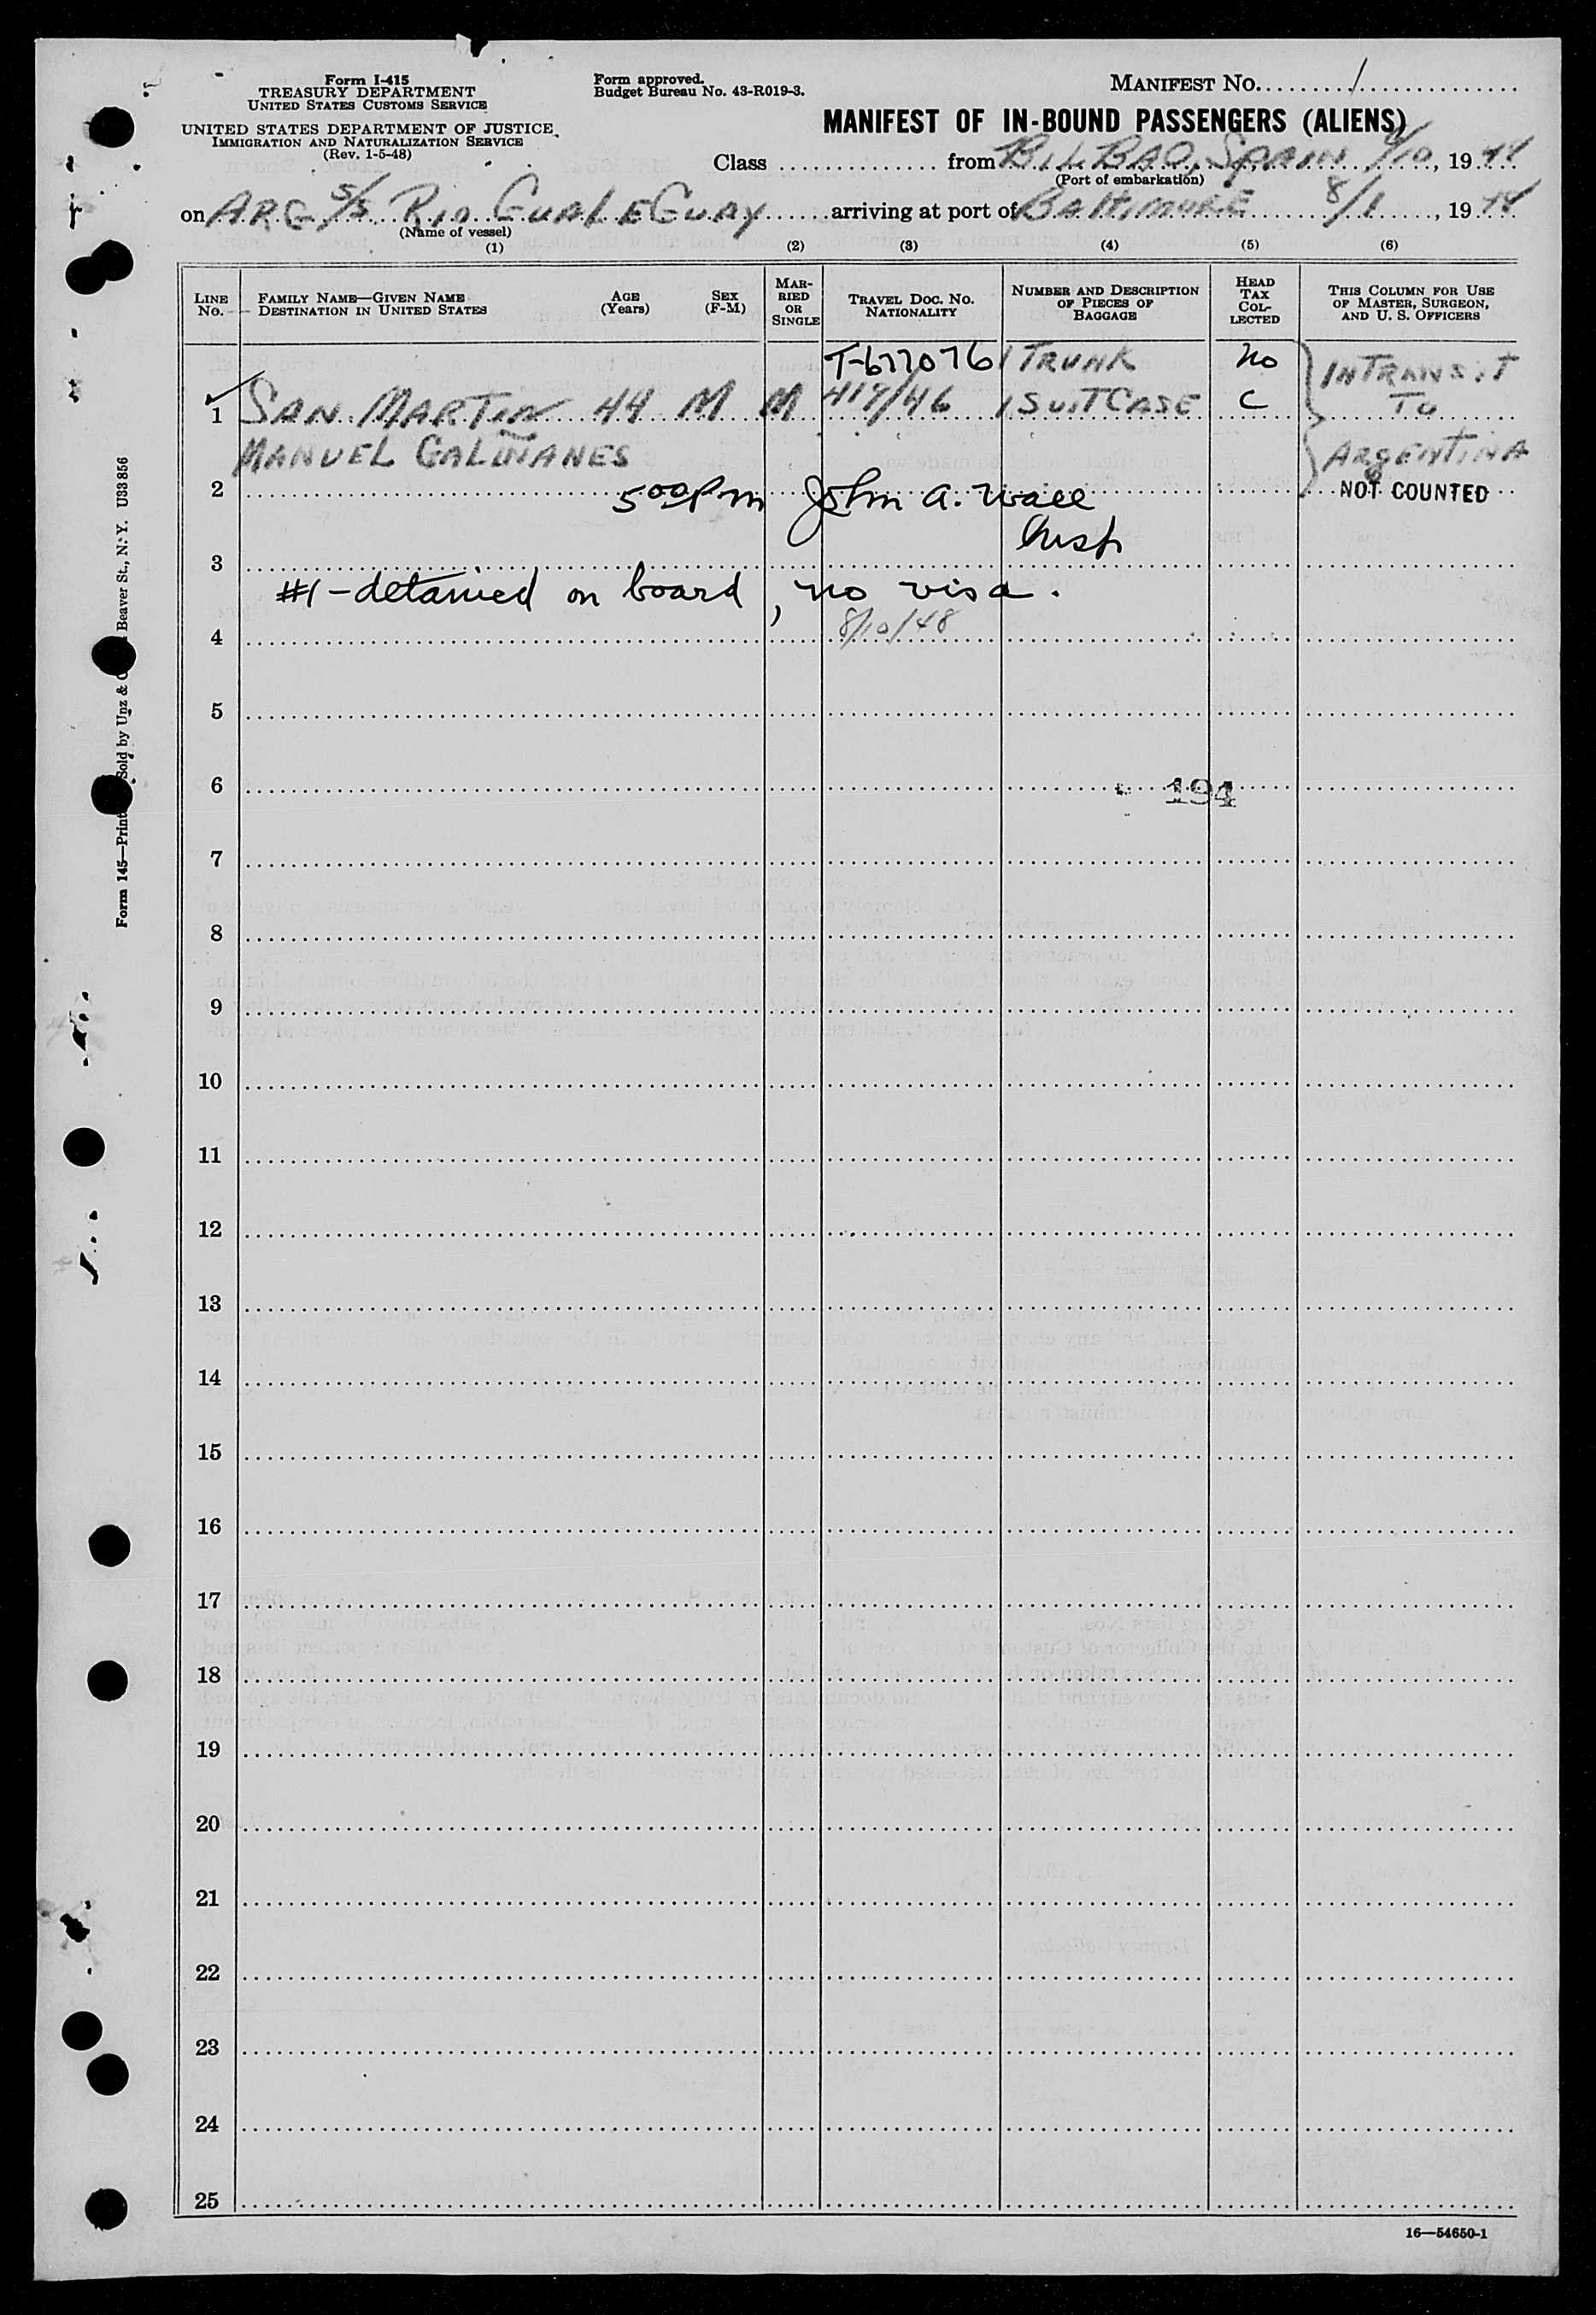 Form I-415
TREASURY DEPARTMENT
UNITED STATES CUSTOMS SERVICE
UNITED STATES DEPARTMENT OF JUSTICE
IMMIGRATION AND NATURALIZATION SERVICE
(Rev. 1-5-48)
Form approved.
Budget Bureau No. 43-R019-3.
MANIFEST No. 1
MANIFEST OF IN-BOUND PASSENGERS (ALIENS)
Class from BILBAO, SPAIN /10, 19
(Port of embarkation)
on ARG S/S RIO GUALEGUAY arriving at port of BALTIMORE 8/1, 19
(Name of vessel)
(1) (2) (3) (4) (5) (6)
LINE No.
FAMILY NAME—GIVEN NAME
DESTINATION IN UNITED STATES
AGE (Years)
SEX (F-M)
MARRIED OR SINGLE
TRAVEL DOC. NO. NATIONALITY
NUMBER AND DESCRIPTION OF PIECES OF BAGGAGE
HEAD TAX COLLECTED
THIS COLUMN FOR USE OF MASTER, SURGEON, AND U. S. OFFICERS
T-677076 1 TRUNK No INTRANSIT
1 SAN MARTIN 44 M M 419/46 1 SUITCASE C TO
MANUEL GALIÑANES ARGENTINA
2 500 Pm John A. Wall NOT COUNTED
Insp
3
#1-detained on board, no visa.
8/10/48
4
5
6 194
7
8
9
10
11
12
13
14
15
16
17
18
19
20
21
22
23
24
25
16—54650-1
Beaver St., N. Y. U33856
Sold by Unz &
Form 145—Print